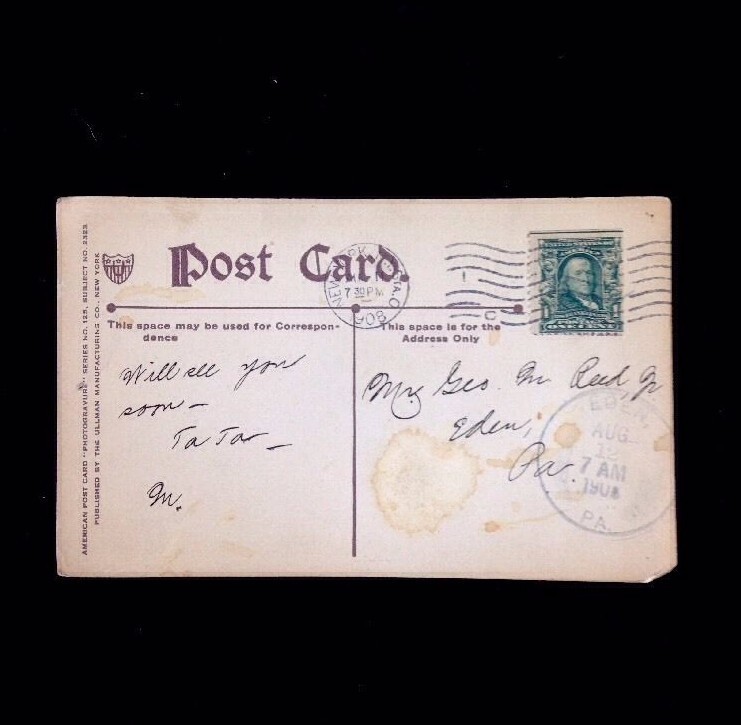 AMERICAN POST CARD "PHOTOGRAVURE" SERIES NO. 125, SUBJECT NO. 2323
PUBLISHED BY THE ULLMAN MANUFACTURING CO., NEW YORK
Post Card.
NEW YORK STA. O
7 30 PM
1908
ONE CENT
This space may be used for Correspon-
dence
This space is for the
Address Only
Will see you
soon —
Ta Ta —
M.
Geo. M. Reed, Jr
Eden,
Pa.
AUG
12
7 AM
PA.